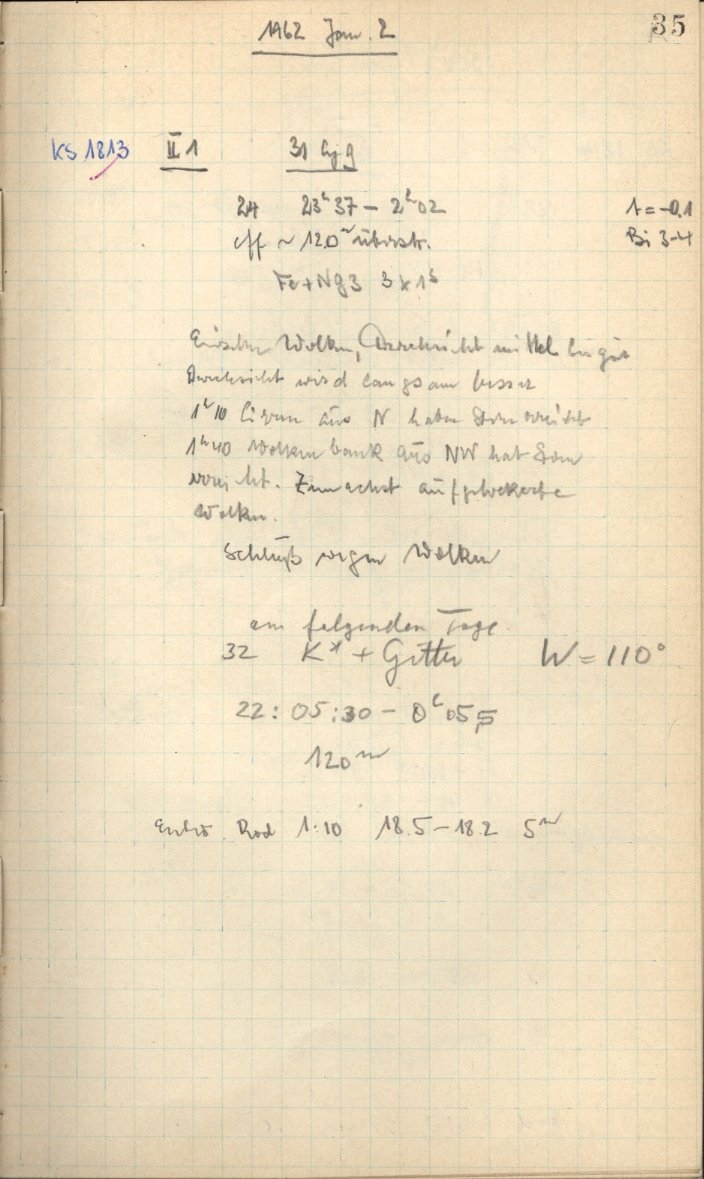 35
1962 Jan. 2
KS 1813 II 1 31 Cyg
24 23ʰ37 – 2ʰ02 t = -0.1
eff ~ 120ᵐ überstr. Bi 3-4
Fe+Ng3 3x1ˢ
Wolken, Durchsicht mittel bis gut
Durchsicht wird langsam besser
1ʰ10 Cirren aus N haben Stern erreicht
1ʰ40 Wolkenbank aus NW hat Stern
erreicht. Zunächst aufgelockerte
Wolken.
Schluß wegen Wolken
am folgenden Tage.
32 K* + Gitter W = 110°
22:05:30 – 0ʰ05,5
120ᵐ
Entw. Rod 1:10 18.5 – 18.2 5ᵐ